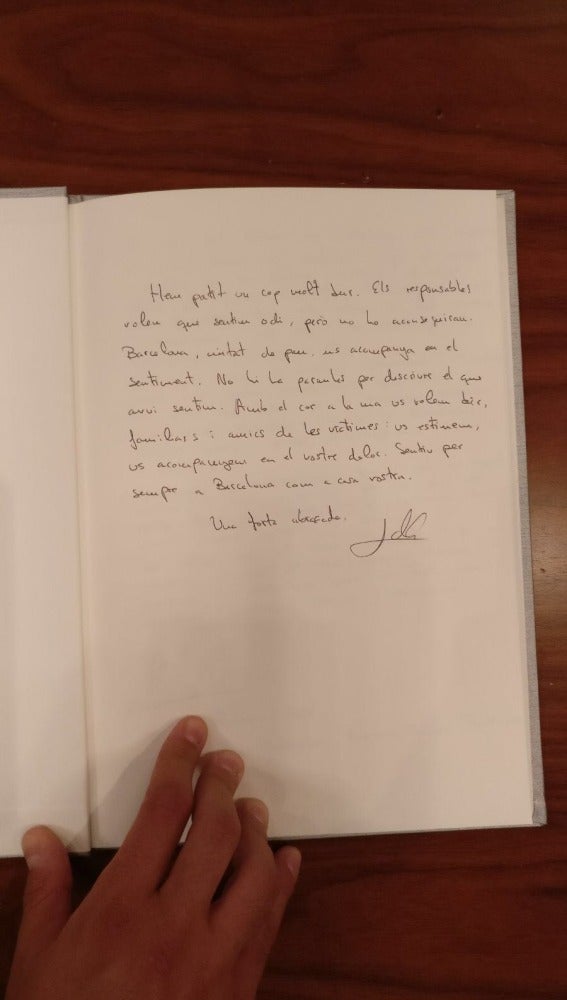 Hem patit un cop molt dur. Els responsables
volen que sentim odi, però no ho aconseguiran.
Barcelona, ciutat de pau, us acompanya en el
sentiment. No hi ha paraules per descriure el que
avui sentim. Amb el cor a la ma us volem dir,
familiars i amics de les víctimes: us estimem,
us acompanyem en el vostre dolor. Sentiu per
sempre a Barcelona com a casa vostra.
Una forta abraçada.